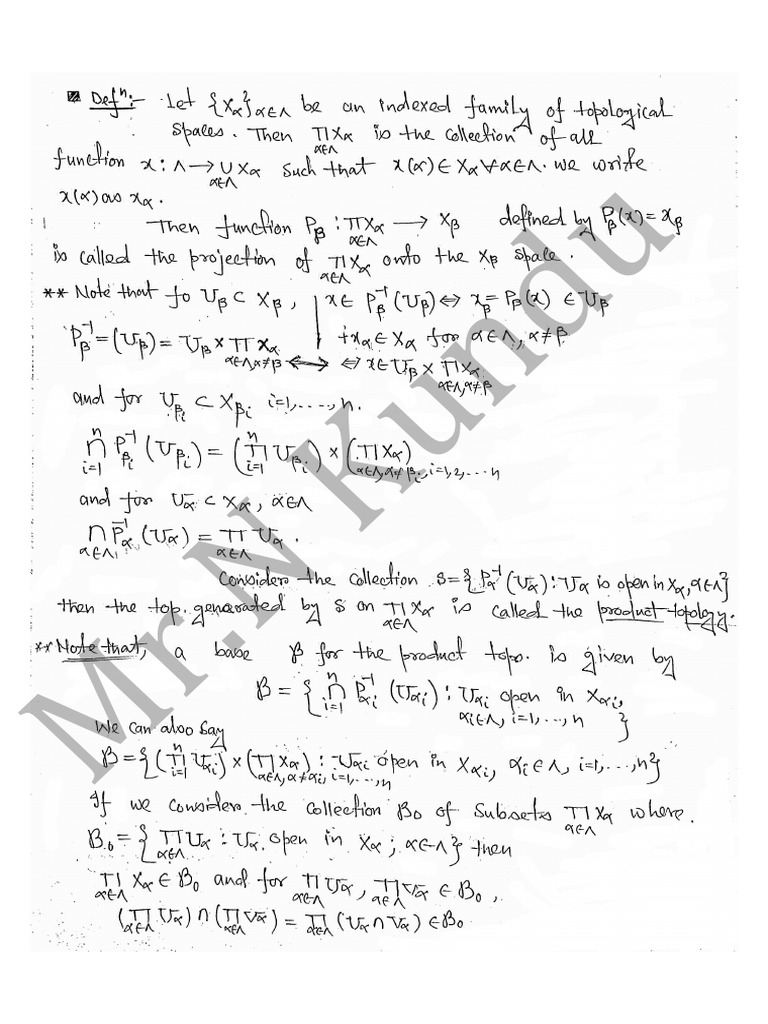 Defⁿ:- Let {Xα}α∈Λ be an indexed family of topological
spaces. Then ΠXα α∈Λ is the collection of all
function x: Λ→ ∪Xα α∈Λ such that x(α) ∈ Xα ∀α∈Λ. We write
x(α) as xα.
Then function Pβ : ΠXα α∈Λ → Xβ defined by Pβ(x) = xβ
is called the projection of ΠXα α∈Λ onto the Xβ space.
** Note that fo Uβ ⊂ Xβ, x∈ Pβ⁻¹(Uβ) ⇔ xβ = Pβ(x) ∈ Uβ
Pβ⁻¹=(Uβ) = Uβ × Π Xα α∈Λ, α≠β +xα ∈ Xα for α∈Λ, α≠β
↔ ⇔ x∈Uβ × ΠXα α∈Λ, α≠β
and for Uβi ⊂ Xβi i=1,....,n.
n∩i=1 Pβi⁻¹(Uβi) = (nΠi=1 Uβi) × (ΠXα) α∈Λ, α≠βi, i=1,2,...n
and for Uα ⊂ Xα, α∈Λ
∩α∈Λ Pα⁻¹(Uα) = Πα∈Λ Uα.
Consider the collection S={Pα⁻¹(Uα): Uα is open in Xα, α∈Λ}
then the top. generated by S on ΠXα α∈Λ is called the product topology.
** Note that, a base B for the product topo. is given by
B = { n∩i=1 Pαi⁻¹(Uαi) : Uαi open in Xαi,
αi∈Λ, i=1,...,n }
We can also say
B={(nΠi=1 Uαi)×(ΠXα) α∈Λ, α≠αi, i=1,...,n : Uαi open in Xαi, αi∈Λ, i=1,...,n}
If we consider the collection B₀ of subsets ΠXα α∈Λ where.
B₀ = {Πα∈Λ Uα : Uα open in Xα ; α∈Λ} then
Πα∈Λ Xα ∈ B₀ and for Πα∈Λ Uα, Πα∈Λ Vα ∈ B₀,
(Πα∈Λ Uα) ∩ (Πα∈Λ Vα) = Πα∈Λ (Uα ∩ Vα) ∈ B₀
Mr.N Kundu